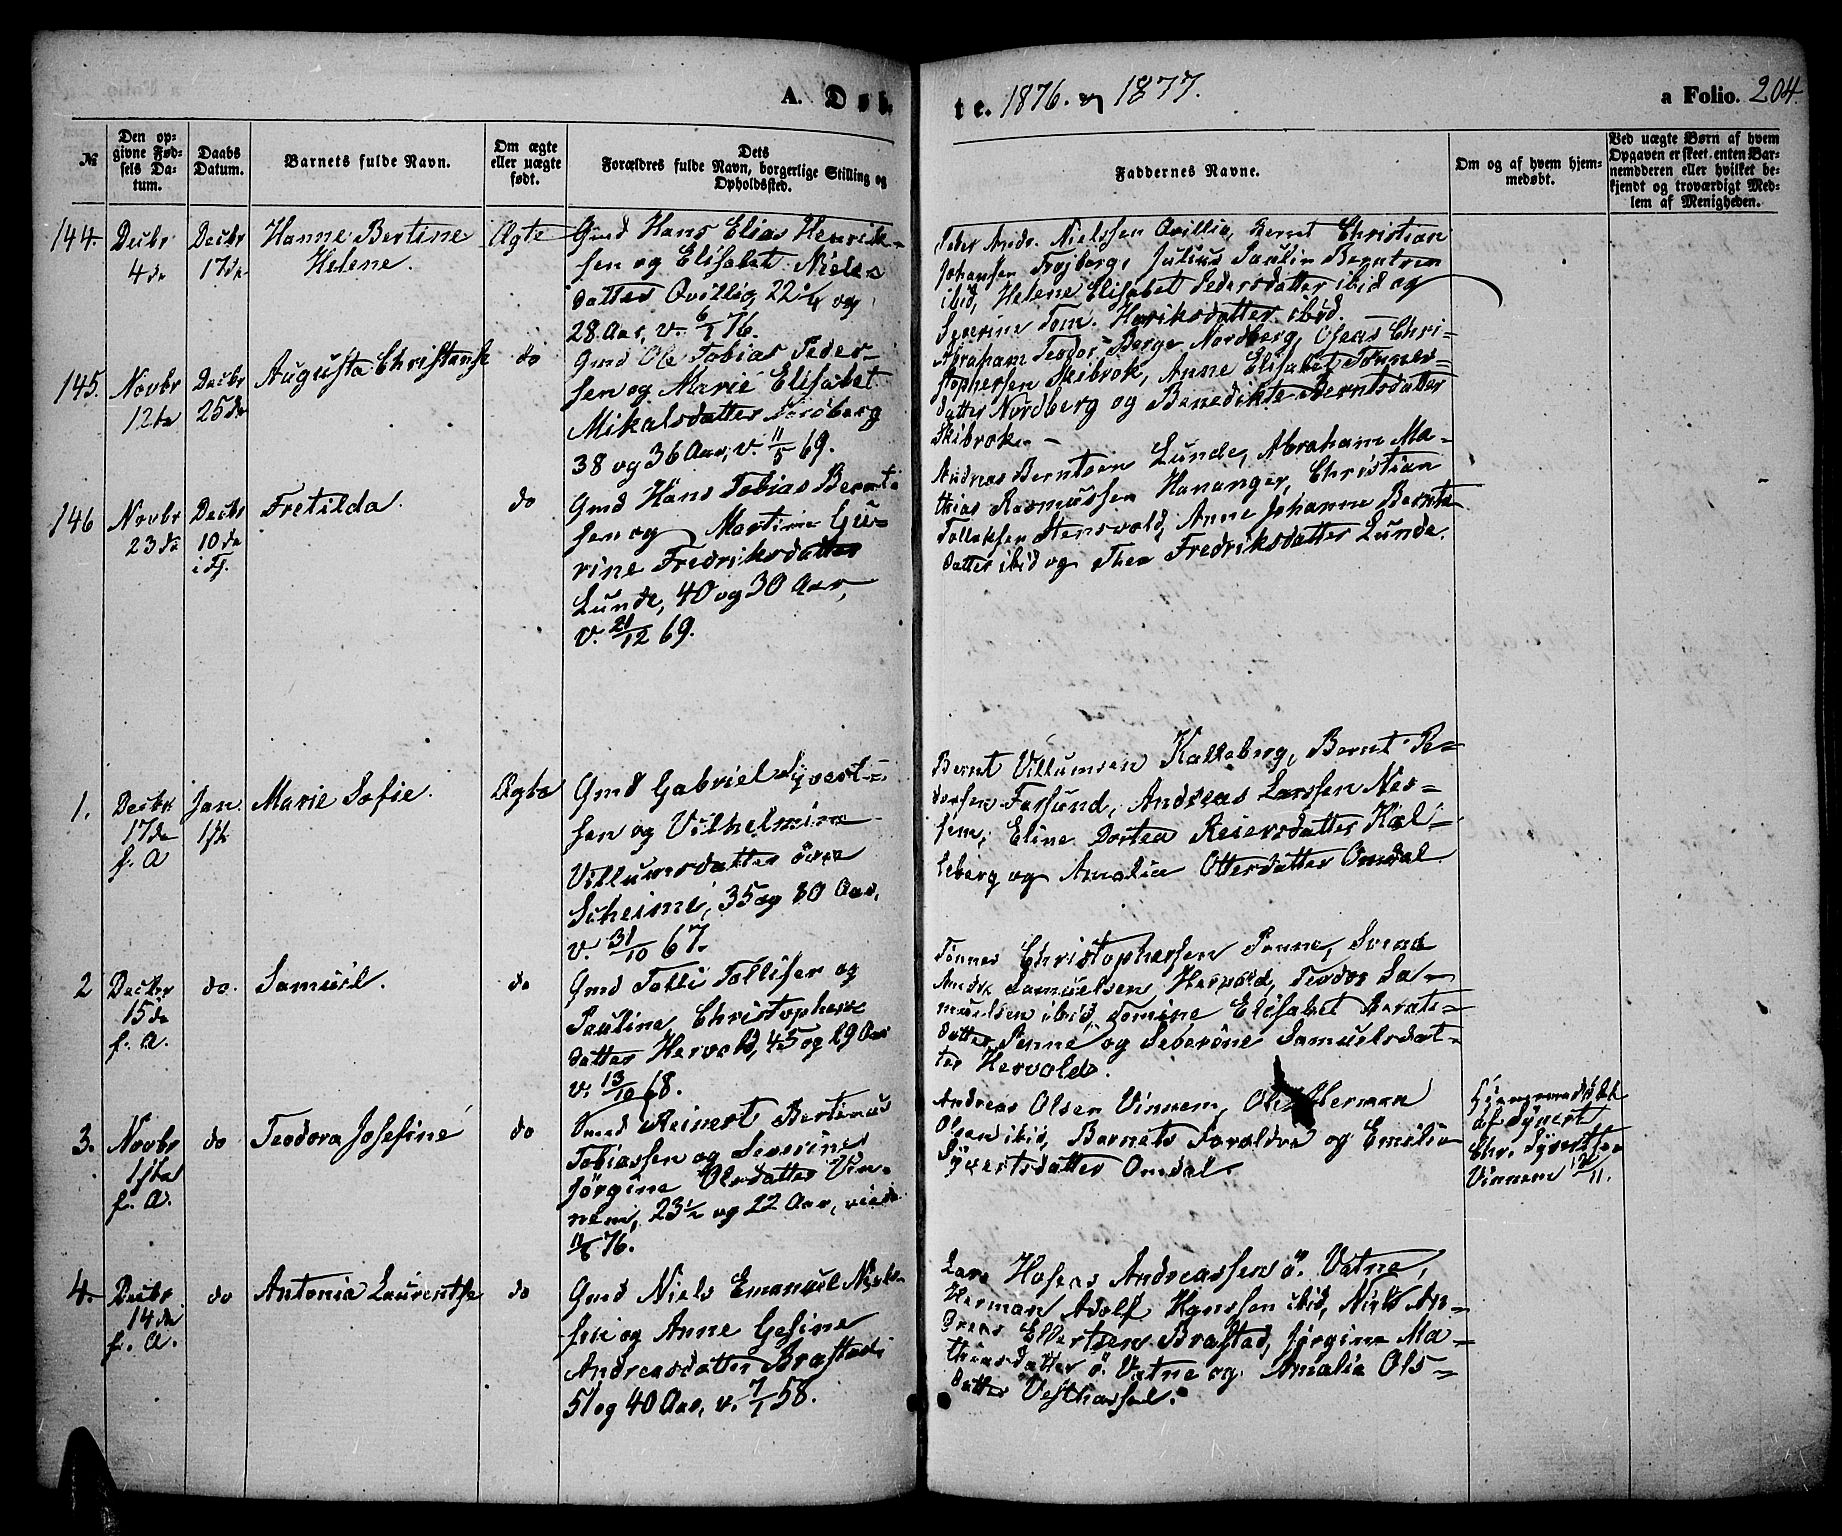 A. Døb
te. 1876. og 1877.
a Folio. 204.
№
Den op-
givne Fød-
sels Da-
tum.
Daabs
Datum.
Barnets fulde Navn.
Om ægte
eller uægte
født.
Dets
Forældres fulde Navn, borgerlige Stilling og
Opholdssted.
Faddernes Navne.
Om og af hvem hjem-
medøbt.
Ved uægte Børn af hvem
Opgaven er skeet, enten Bar-
nemoderen eller hvilket be-
kjendt og troværdigt Med-
lem af Menigheden.
144.
Decbr
4de
Decbr
17de
Hanne Bertine
Helene.
Ægte
Gmd Hans Elias Henrik-
sen og Elisabet Niels
datter Qvillig 22 1/4 og
28 Aar, v. 6/1 76.
Peder Andr. Nielssen Qvillig, Bernt Christian
Johansen Frøjberg, Julius Paulin Berntsen
ibid, Helene Elisabet Pedersdatter ibid og
Severine Tom. Henriksdatter ibid.
145.
Novbr
12te
Decbr
25de
Augusta Christense
do
Gmd Ole Tobias Peder-
sen og Marie Elisabet
Mikalsdatter Nordberg
38 og 36 Aar, v. 11/5 69.
Abraham Teodor Berge Nordberg, Oseas Chri-
stophersen Skibrok, Anne Elisabet Tønnes-
datter Nordberg og Benedikte Berntsdatter
Skibrok.
146
Novbr
23de
Decbr
10de
i Fj.
Fretilda
do
Gmd Hans Tobias Bernt-
sen og Martine Gu-
rine Fredriksdatter
Lunde, 40 og 30 Aar,
v. 21/12 69.
Andreas Berntsen Lunde, Abraham Ma-
thias Rasmussen Hananger, Christian
Tollaksen Stensvold, Anne Johanne Bernts-
datter ibid og Thea Fredriksdatter Lunde.
1.
Decbr
17de
f. A
Jan.
1ste
Marie Sofie.
Ægte
Gmd Gabriel Syvert-
sen og Vilhelmine
Villumsdatter øvre
Skeime, 35 og 30 Aar,
v. 31/10 67.
Bernt Villumsen Kalleberg, Bernt Pe-
dersen Farsund, Andreas Larssen Nes-
heim, Eline Dortea Reiersdatter Kal-
leberg og Amalia Ottersdatter Omdal
2
Decbr
15de
f. A.
do.
Samuel.
do
Gmd Tolli Tollisen og
Pauline Christophers
datter Hervold, 45 og 29 Aar
v. 13/10 68.
Tønnes Christophersen Penne, Svend
Andr. Samuelsen Hervold, Teodor Sa-
muelsen ibid, Tomine Elisabet Bernts-
datter Penne og Seberine Samuelsdat-
ter Hervold.
3.
Novbr
1ste
f. A.
do
Teodora Josefine
do
Gmd Reinert Bertinus
Tobiassen og Severine
Jørgine Olsdatter Vin-
nem, 23 1/2 og 22 Aar, viede
11/8 76.
Andreas Olsen Vinnem, Ole Herman
Olsen ibid, Barnets Forældre og Emilie
Syvertsdatter Omdal.
Hjemmedøbt
af Syvert
Chr. Syvertsen
Vinnem 12/11.
4.
Decbr
14de
f. A.
do
Antonia Laurentse
do
Gmd Niels Emanuel Niels-
sen og Anne Gesine
Andreasdatter Brastad
51 og 40 Aar, v. 7/1 58.
Lars Hoseas Andreassen ö. Vatne,
Herman Adolf Hanssen ibid, Niels An-
dreas Ellertsen Brastad, Jørgine Ma-
thiasdatter ö. Vatne og Amalia Ols-
datter Vesthassel.